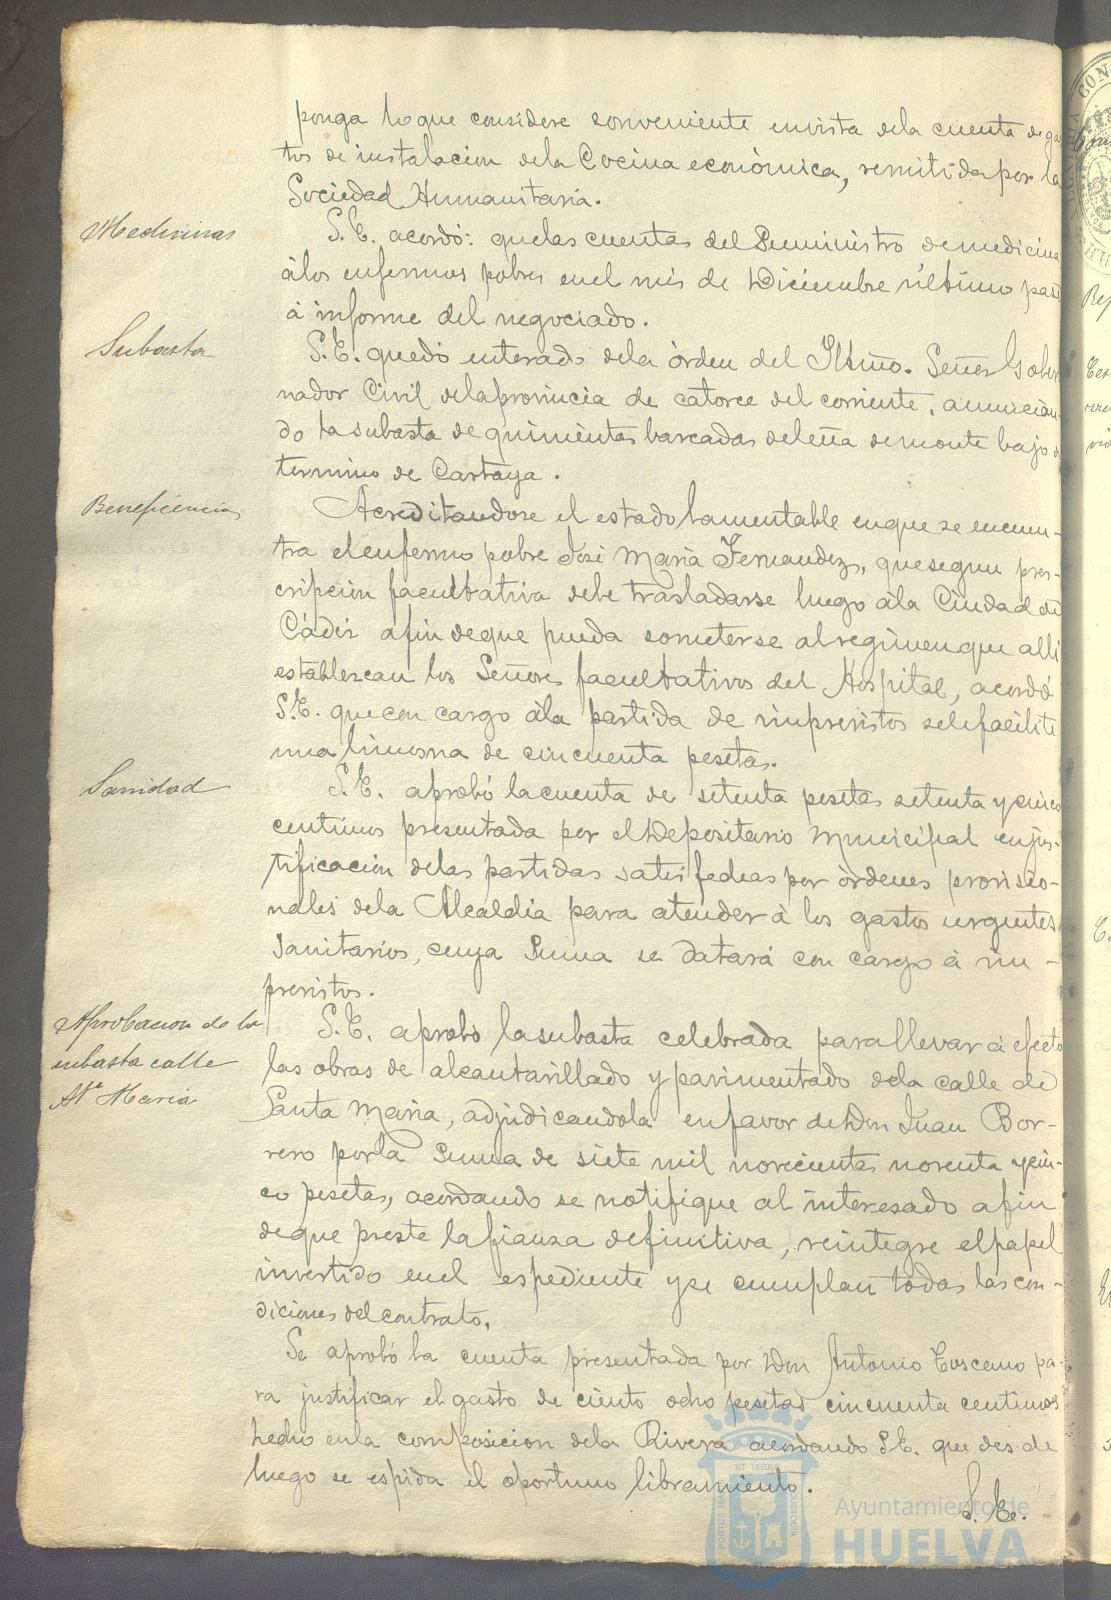 ponga lo que considere conveniente envista dela cuenta de gas
tos de instalacion dela Cocina económica, remitida por la
Sociedad Humanitaria.
Medicinas
S.E. acordó: quelas cuentas del Suministro demedicina
álos enfermos pobres enel més de Diciembre último pase
á informe del negociado.
Subasta
S.E. quedó enterado dela órden del Iltmo. Señor Gober
nador Civil delaprovincia de catorce del corriente, anuncian-
do la subasta de quinientas barcadas deleña demonte bajo
termino de Cartaya.
Beneficencia
Acreditandose el estado lamentable enque se encuen-
tra elenfermo pobre José Maria Fernandez, quesegun pres-
cripción facultativa debe trasladarse luego ála Ciudad de
Cádiz afin deque pueda someterse alregimenque alli
establezcan los Señores facultativos del Hospital, acordó
S.E. quecon cargo ála partida de imprevistos selefacilite
una limosna de cincuenta pesetas.
Sanidad
S.E. aprobó lacuenta de setenta pesetas setenta y cinco
centimos presentada por el Depositario Municipal enjus-
tificación delas partidas satisfechas por órdenes provisio-
nales dela Alcaldia para atender á los gastos urgentes
Sanitarios, cuya Suma se datará con cargo á im-
previstos.
Aprobacion de la
subasta calle
Sta Maria
S.E. aprobó lasubasta celebrada parallevar á efecto
las obras de alcantarillado y pavimentado dela calle de
Santa Maria, adjudicandola enfavor de Don Juan Bor-
rero porla Suma de siete mil novecientas noventa ycin-
co pesetas, acordando se notifique al interesado afin
deque preste lafianza definitiva, reintegre elpapel
invertido enel espediente yse cumplan todas las con-
diciones del contrato.
Se aprobó la cuenta presentada por Don Antonio Toscano pa-
ra justificar el gasto de ciento ocho pesetas cincuenta centimos
hecho enla composicion dela Rivera acordando S.E. que desde
luego se espida el oportuno libramiento.
S. E.
Ayuntamiento de
HUELVA